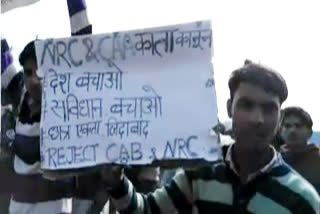 NRC & CAB काला कानून
देश बचाओ
संविधान बचाओ
छात्र एकता जिंदाबाद
REJECT CAB & NRC